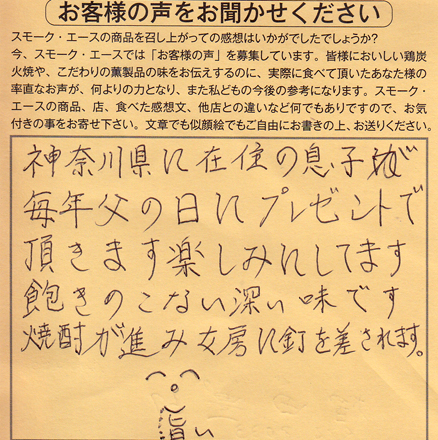 お客様の声をお聞かせください
スモーク・エースの商品を召し上がっての感想はいかがでしたでしょうか?
今、スモーク・エースでは「お客様の声」を募集しています。皆様においしい鶏炭
火焼や、こだわりの薫製品の味をお伝えするのに、実際に食べて頂いたあなた様の
率直なお声が、何よりの力となり、また私どもの今後の参考になります。スモーク・
エースの商品、店、食べた感想文、他店との違いなど何でもありですので、お気
付きの事をお寄せ下さい。文章でも似顔絵でもご自由にお書きの上、お送りください。
神奈川県に在住の息子が
毎年父の日にプレゼントで
頂きます楽しみにしてます
飽きのこない深い味です
焼酎が進み女房に釘を差されます。
旨い